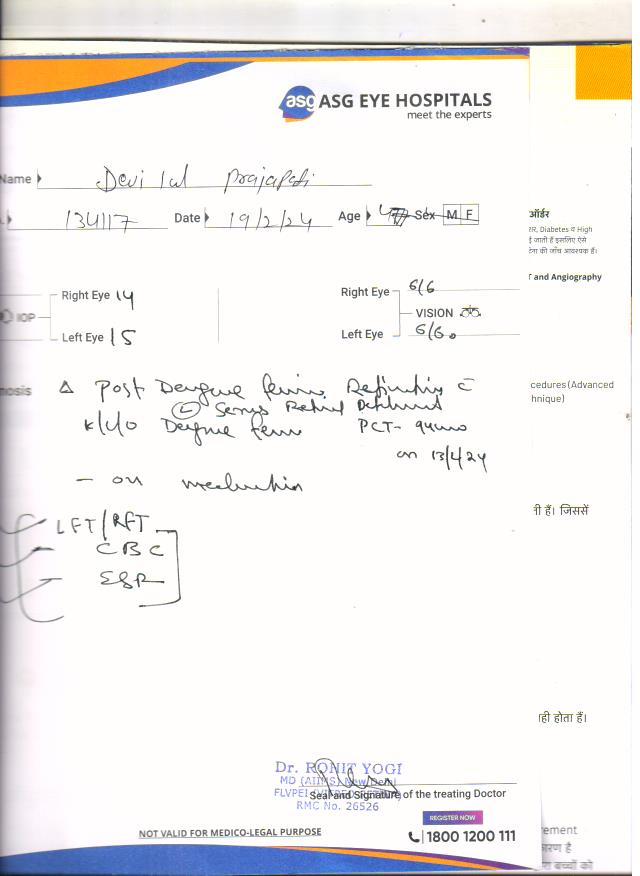 asg ASG EYE HOSPITALS
meet the experts
Name Devi lal Prajapati
134117 Date 19/2/24 Age Sex M F
Right Eye 14
IOP
Left Eye 15
Right Eye 6/6
VISION
Left Eye 6/60
nosis Δ Post Dengue
(L) Serous Retinal
k/c/o Dengue PCT-
on 13/4/24
- on medication
LFT/RFT
CBC
ESR
Dr. ROHIT YOGI
MD (AIIMS) New Delhi
FLVPEI
Seal and Signature of the treating Doctor
RMC No. 26526
REGISTER NOW
NOT VALID FOR MEDICO-LEGAL PURPOSE
1800 1200 111
ऑर्डर
Diabetes व High
जाती हैं इसलिए ऐसे
की जाँच आवश्यक हैं।
and Angiography
cedures (Advanced
hnique)
नी हैं। जिससें
ही होता हैं।
ement
कारण है
बच्चों को